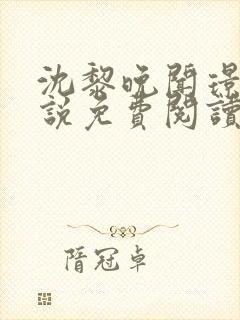 沈黎晚聞璟
說免費閱讀
隋冠卓